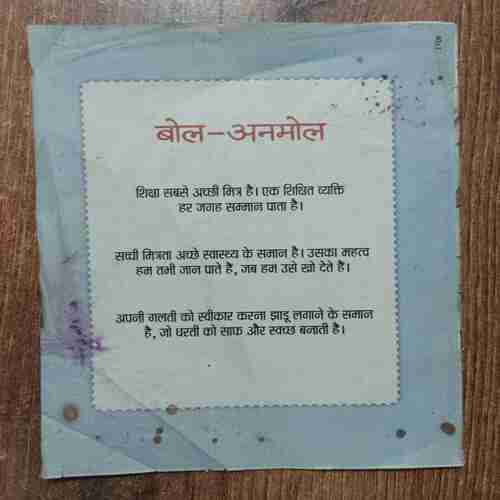 बोल-अनमोल
शिक्षा सबसे अच्छी मित्र है। एक शिक्षित व्यक्ति
हर जगह सम्मान पाता है।
सच्ची मित्रता अच्छे स्वास्थ्य के समान है। उसका महत्व
हम तभी जान पाते हैं, जब हम उसे खो देते हैं।
अपनी गलती को स्वीकार करना झाडू लगाने के समान
है, जो धरती को साफ और स्वच्छ बनाती है।